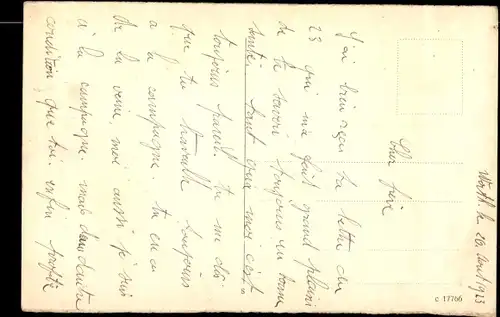 le 20 Août 1923
Cher frère
J'ai bien reçu ta lettre du
23 qui m'a fait grand plaisir
de te savoir toujours en bonne
santé, tant que moi c'est
toujours pareil. tu me dis
que tu travaille toujours
a la campagne tu en a
de la veine, moi aussi je suis
à la campagne mais dans d'autre
condition, que toi. enfin profite
c 17766